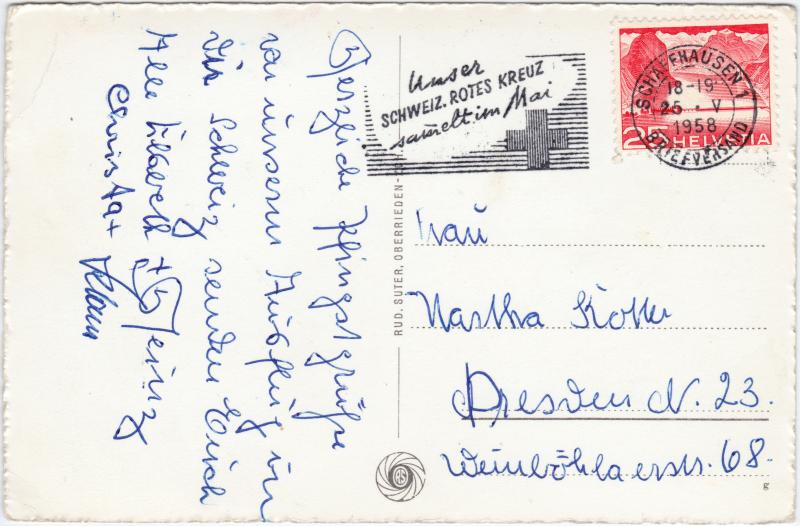 Herzliche Pfingstgrüße
von unserem Ausflug in
die Schweiz senden Euch
Alle Lisbeth + Heinz
Christa +
Klaus
Unser
SCHWEIZ. ROTES KREUZ
sammelt im Mai
SCHAFFHAUSEN 1
18-19
25. V
1958
BRIEFVERSAND
HELVETIA
RUD. SUTER, OBERRIEDEN-
Frau
Martha Kotte
Dresden N. 23.
Weinböhlaerstr. 68.